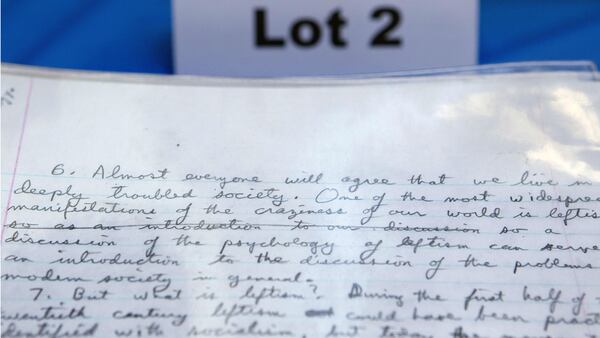 Lot 2
6. Almost everyone will agree that we live in
deeply troubled society. One of the most widesprea
manifestations of the craziness of our world is leftis
so as an introduction to our discussion so a
discussion of the psychology of leftism can serve
an introduction to the discussion of the problems
modern society in general.
7. But what is leftism? During the first half of
wentieth century leftism could have been pract
dentified with socialism, but today the